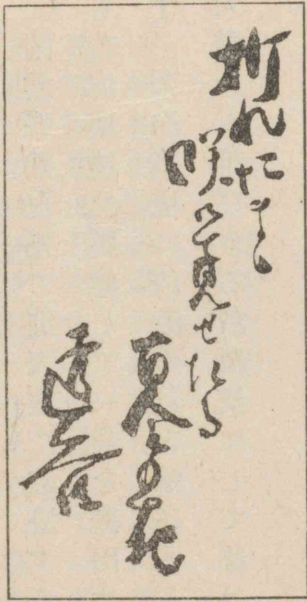 折れたまゝ
咲て見せたる
百合の花
透谷